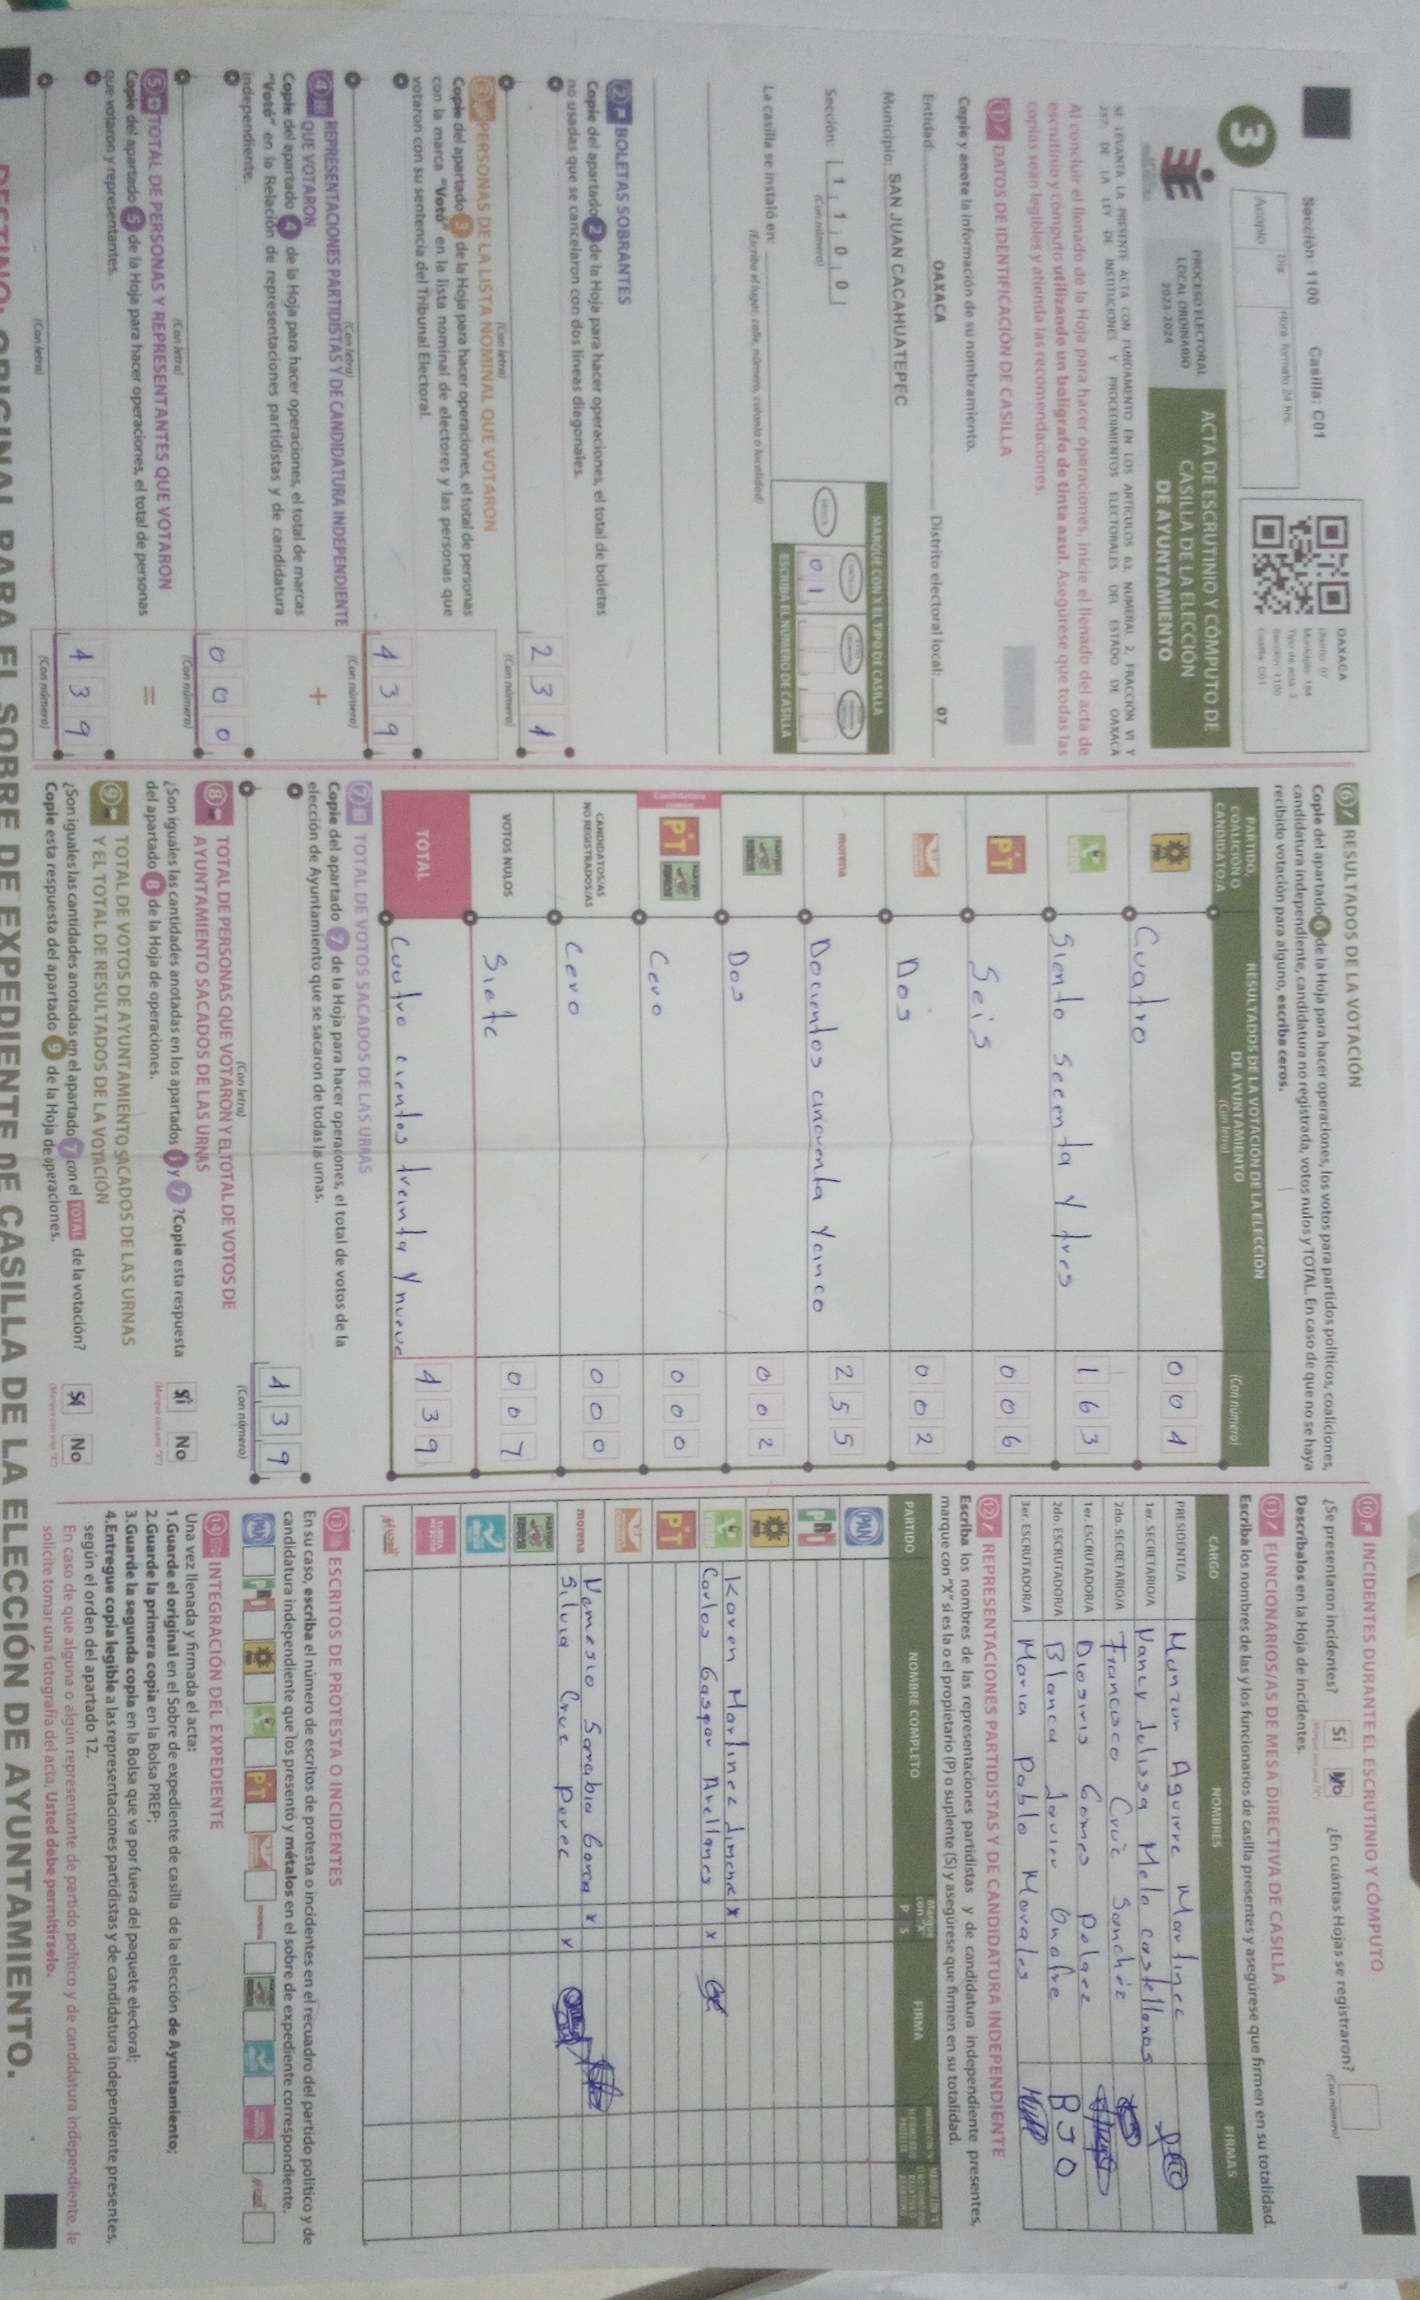 Sección: 1100 Casilla: C01
3
Acopio
Día
Hora formato 24 hrs
OAXACA
Distrito: 07
Tipo de acta: 3
Sección: 1100
Casilla: C01
PROCESO ELECTORAL
LOCAL ORDINARIO
2023-2024
ACTA DE ESCRUTINIO Y CÓMPUTO DE
CASILLA DE LA ELECCIÓN
DE AYUNTAMIENTO
SE LEVANTA LA PRESENTE ACTA CON FUNDAMENTO EN LOS ARTÍCULOS 83, NUMERAL 2, FRACCIÓN VI Y
DE LA LEY DE INSTITUCIONES Y PROCEDIMIENTOS ELECTORALES DEL ESTADO DE OAXACA
Al concluir el llenado de la Hoja para hacer operaciones, inicie el llenado del acta de
escrutinio y cómputo utilizando un bolígrafo de tinta azul. Asegúrese que todas las
copias sean legibles y atienda las recomendaciones.
1 DATOS DE IDENTIFICACIÓN DE CASILLA
Copie y anote la información de su nombramiento.
Entidad: OAXACA Distrito electoral local: 07
Municipio: SAN JUAN CACAHUATEPEC
Sección: 1 1 0 0
(Con número)
MARQUE CON X EL TIPO DE CASILLA
0 1
ESCRIBA EL NÚMERO DE CASILLA
La casilla se instaló en:
(Escriba el lugar, calle, número, colonia o localidad)
2 BOLETAS SOBRANTES
Copie del apartado 2 de la Hoja para hacer operaciones, el total de boletas
no usadas que se cancelaron con dos líneas diagonales.
2 3 1
(Con letra) (Con número)
3 PERSONAS DE LA LISTA NOMINAL QUE VOTARON
Copie del apartado 3 de la Hoja para hacer operaciones, el total de personas
con la marca "Votó" en la lista nominal de electores y las personas que
votaron con su sentencia del Tribunal Electoral.
4 3 9
(Con letra) (Con número)
4 REPRESENTACIONES PARTIDISTAS Y DE CANDIDATURA INDEPENDIENTE
QUE VOTARON
+
Copie del apartado 4 de la Hoja para hacer operaciones, el total de marcas
"Votó" en la Relación de representaciones partidistas y de candidatura
independiente.
0 0 0
(Con letra) (Con número)
5 TOTAL DE PERSONAS Y REPRESENTANTES QUE VOTARON
=
Copie del apartado 5 de la Hoja para hacer operaciones, el total de personas
que votaron y representantes.
4 3 9
(Con letra) (Con número)
6 RESULTADOS DE LA VOTACIÓN
Copie del apartado 6 de la Hoja para hacer operaciones, los votos para partidos políticos, coaliciones,
candidatura independiente, candidatura no registrada, votos nulos y TOTAL. En caso de que no se haya
recibido votación para alguno, escriba ceros.
PARTIDO,
COALICIÓN O
CANDIDATO/A
RESULTADOS DE LA VOTACIÓN DE LA ELECCIÓN
DE AYUNTAMIENTO
(Con letra)
(Con número)
PRD Cuatro 0 0 4
Siento Secenta y tres 1 6 3
PT Seis 0 0 6
Dos 0 0 2
morena Docientos cincuenta Ycinco 2 5 5
Dos 0 0 2
Candidatura común
PT Cero 0 0 0
CANDIDATOS/AS
NO REGISTRADOS/AS Cero 0 0 0
VOTOS NULOS Siete 0 0 7
TOTAL Cuatro cientos treinta y nueve 4 3 9
7 TOTAL DE VOTOS SACADOS DE LAS URNAS
Copie del apartado 7 de la Hoja para hacer operaciones, el total de votos de la
elección de Ayuntamiento que se sacaron de todas la urnas.
4 3 9
(Con letra) (Con número)
8 TOTAL DE PERSONAS QUE VOTARON Y EL TOTAL DE VOTOS DE
AYUNTAMIENTO SACADOS DE LAS URNAS
¿Son iguales las cantidades anotadas en los apartados 5 y 7 ?Copie esta respuesta
del apartado 8 de la Hoja de operaciones.
Sí No
9 TOTAL DE VOTOS DE AYUNTAMIENTO SACADOS DE LAS URNAS
Y EL TOTAL DE RESULTADOS DE LA VOTACIÓN
¿Son iguales las cantidades anotadas en el apartado 7 con el TOTAL de la votación?
Copie esta respuesta del apartado 9 de la Hoja de operaciones.
Sí No
10 INCIDENTES DURANTE EL ESCRUTINIO Y CÓMPUTO
¿Se presentaron incidentes? Sí No ¿En cuántas Hojas se registraron?
(Con número)
Descríbalos en la Hoja de incidentes.
11 FUNCIONARIOS/AS DE MESA DIRECTIVA DE CASILLA
Escriba los nombres de las y los funcionarios de casilla presentes y asegúrese que firmen en su totalidad.
CARGO NOMBRES FIRMAS
PRESIDENTE/A Munzon Aguirre Martinec
1er. SECRETARIO/A Nancy Julissa Melo castellanos
2do. SECRETARIO/A Francisco Cruz Sanchéz
1er. ESCRUTADOR/A Diosiris Gomes pelaez
2do. ESCRUTADOR/A Blanca Javier Onofre BJO
3er. ESCRUTADOR/A Maria Pablo Morales
12 REPRESENTACIONES PARTIDISTAS Y DE CANDIDATURA INDEPENDIENTE
Escriba los nombres de las representaciones partidistas y de candidatura independiente presentes,
marque con "X" si es la o el propietario (P) o suplente (S) y asegúrese que firmen en su totalidad.
PARTIDO NOMBRE COMPLETO P S FIRMA
PAN
PRI
PRD
Karen Martinez Jimenez x
Carlos Gaspar Arellanes x
PT
morena Nemesio Sarabia Garcia x
Silvia Cruz perez x
13 ESCRITOS DE PROTESTA O INCIDENTES
En su caso, escriba el número de escritos de protesta o incidentes en el recuadro del partido político y de
candidatura independiente que los presentó y métalos en el sobre de expediente correspondiente.
PAN PRI PRD PT morena
14 INTEGRACIÓN DEL EXPEDIENTE
Una vez llenada y firmada el acta:
1.Guarde el original en el Sobre de expediente de casilla de la elección de Ayuntamiento;
2.Guarde la primera copia en la Bolsa PREP;
3.Guarde la segunda copia en la Bolsa que va por fuera del paquete electoral;
4.Entregue copia legible a las representaciones partidistas y de candidatura independiente presentes,
según el orden del apartado 12.
En caso de que alguna o algún representante de partido político y de candidatura independiente, le
solicite tomar una fotografía del acta, Usted debe permitírselo.
DESTINO: ORIGINAL PARA EL SOBRE DE EXPEDIENTE DE CASILLA DE LA ELECCIÓN DE AYUNTAMIENTO.